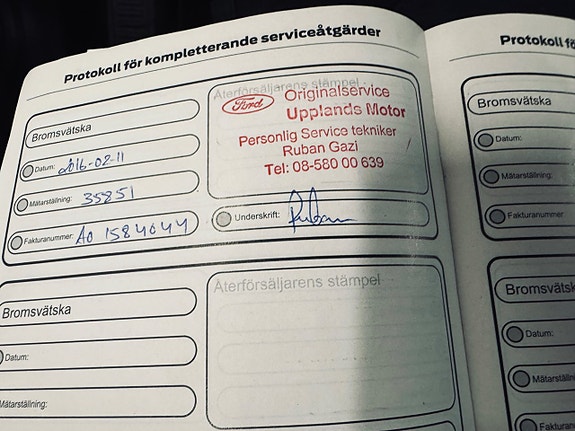 Protokoll för kompletterande serviceåtgärder
Bromsvätska
Datum: 2016-02-11
Mätarställning: 35851
Fakturanummer: AO 1584044
Återförsäljarens stämpel
Ford Originalservice
Upplands Motor
Personlig Service tekniker
Ruban Gazi
Tel: 08-580 00 639
Underskrift: Ruban
Bromsvätska
Datum:
Mätarställning:
Återförsäljarens stämpel
Protokoll fö
Bromsvätska
Datum:
Mätarställning:
Fakturanummer:
Bromsvätska
Datum:
Mätarställning: